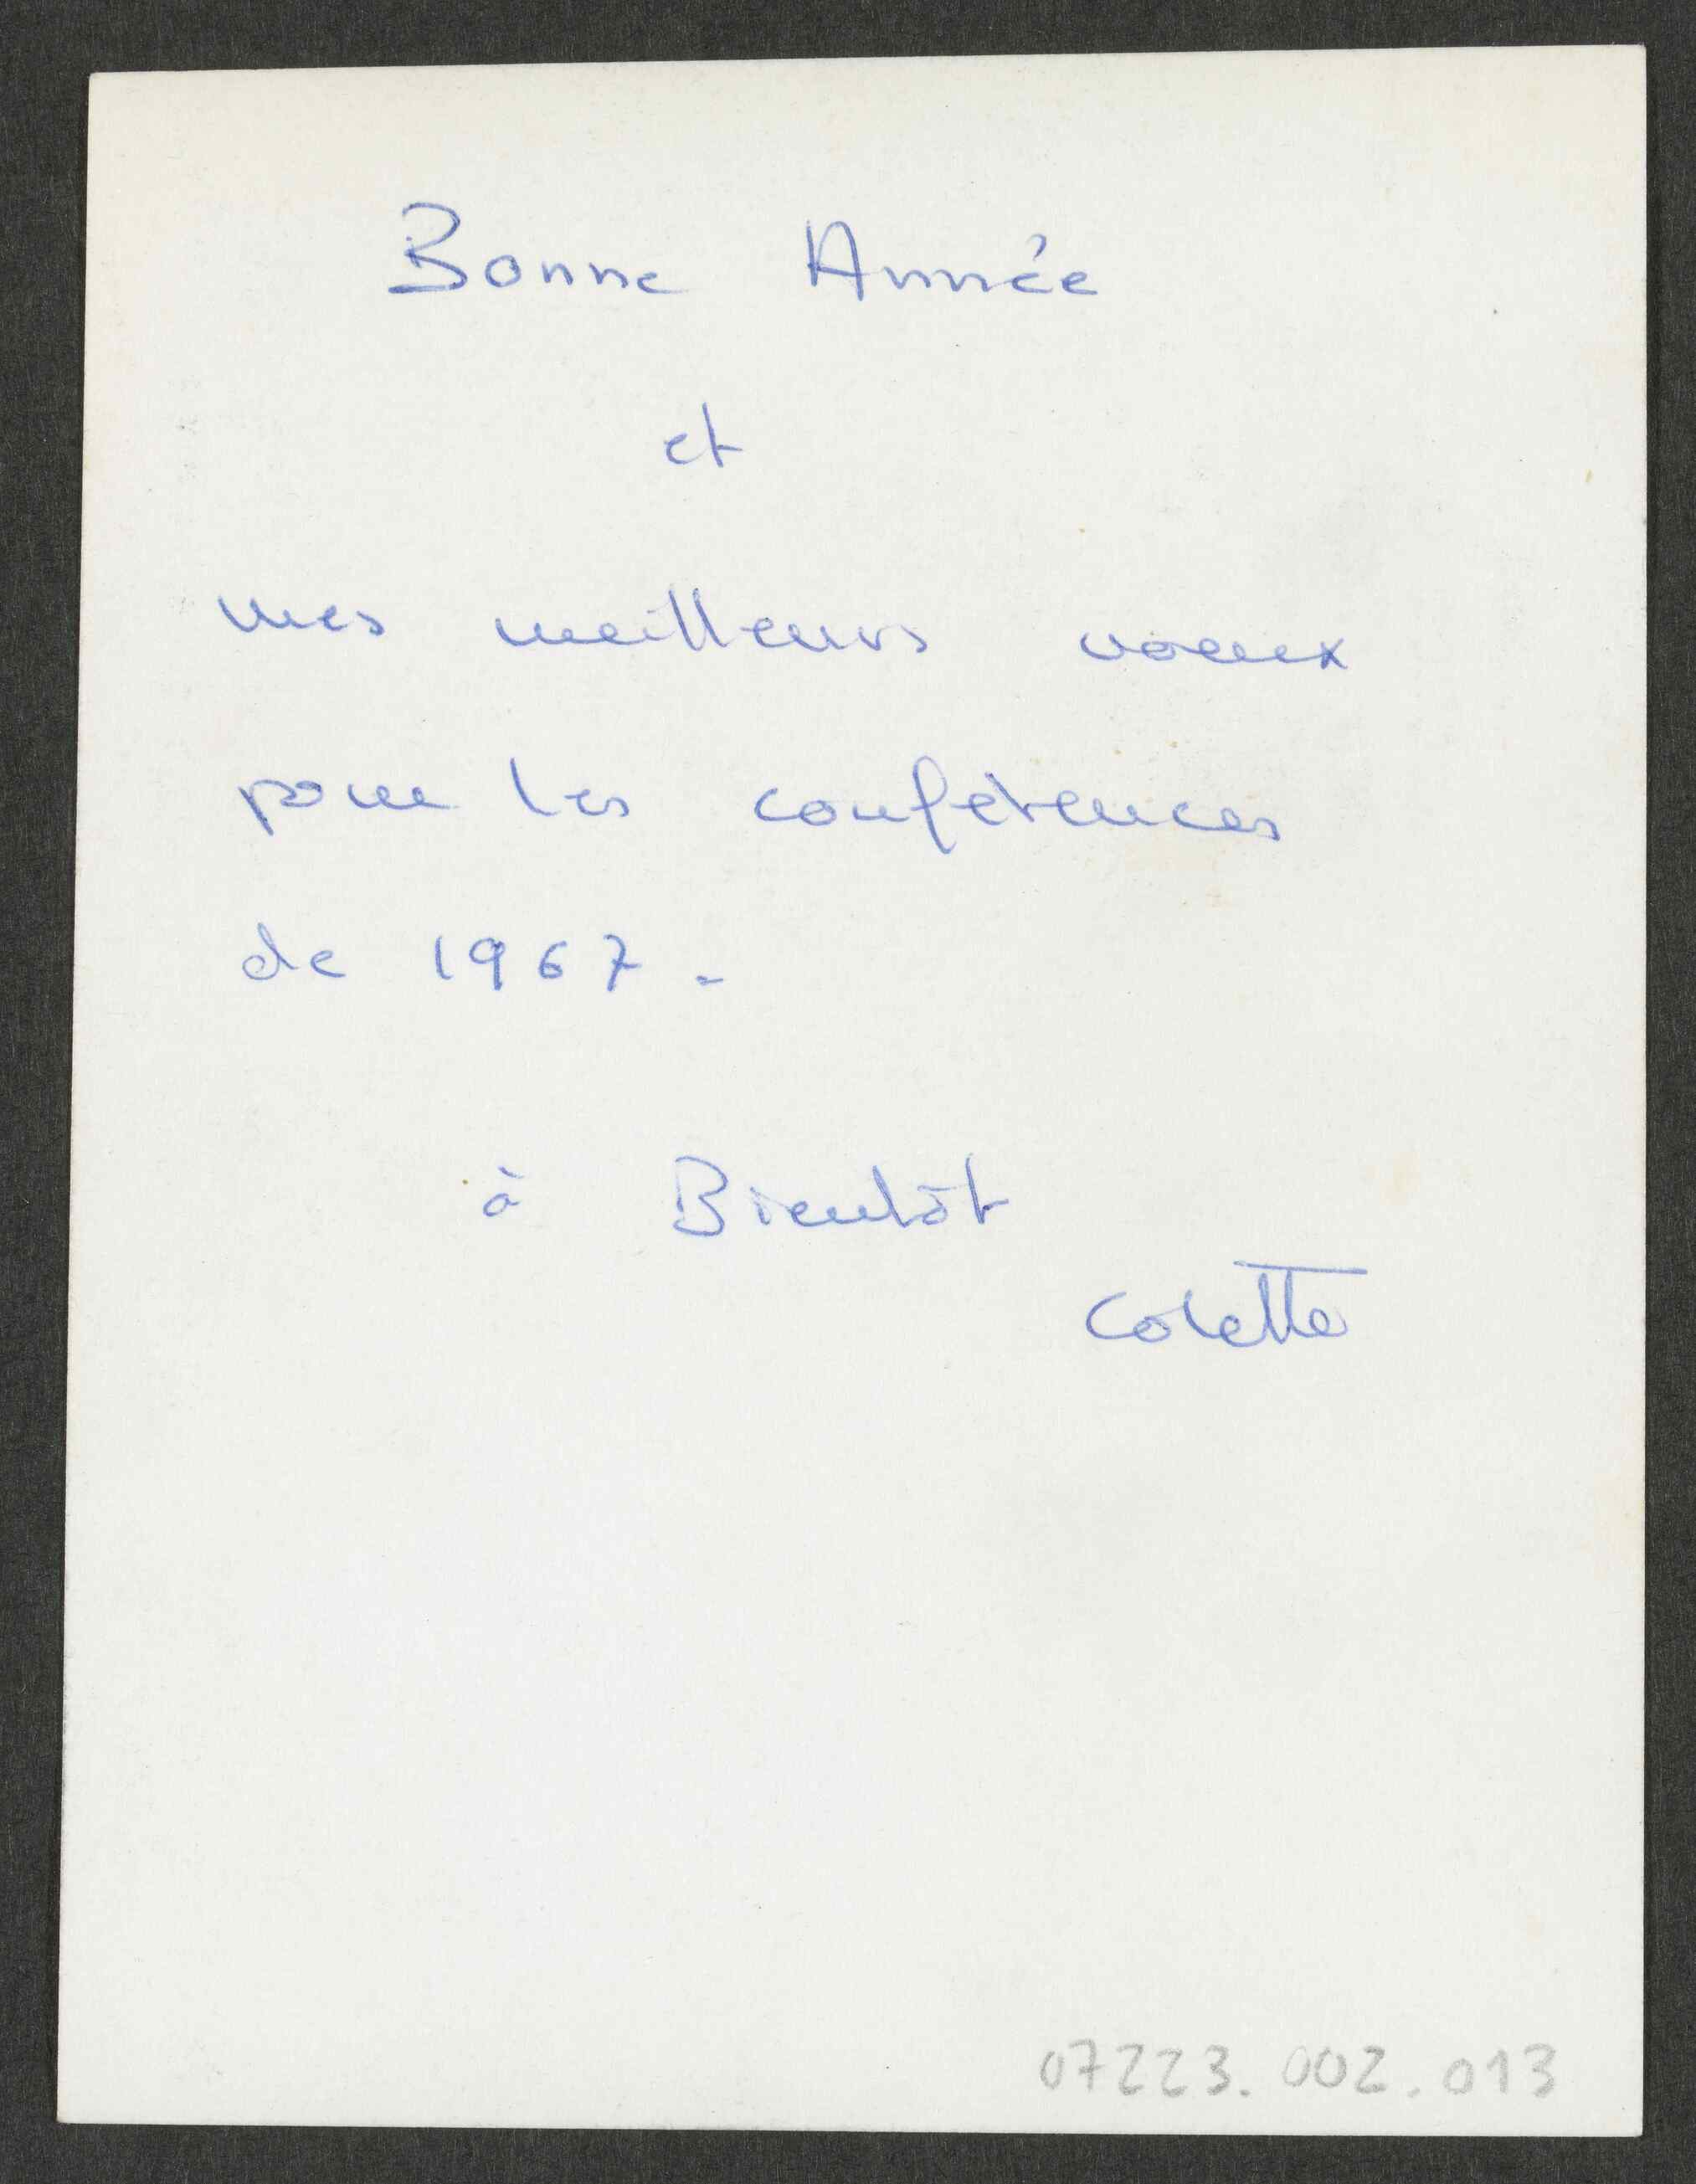 Bonne Année
et
mes meilleurs voeux
pour les conferences
de 1967.
à Bientôt
Colette
07223.002.013